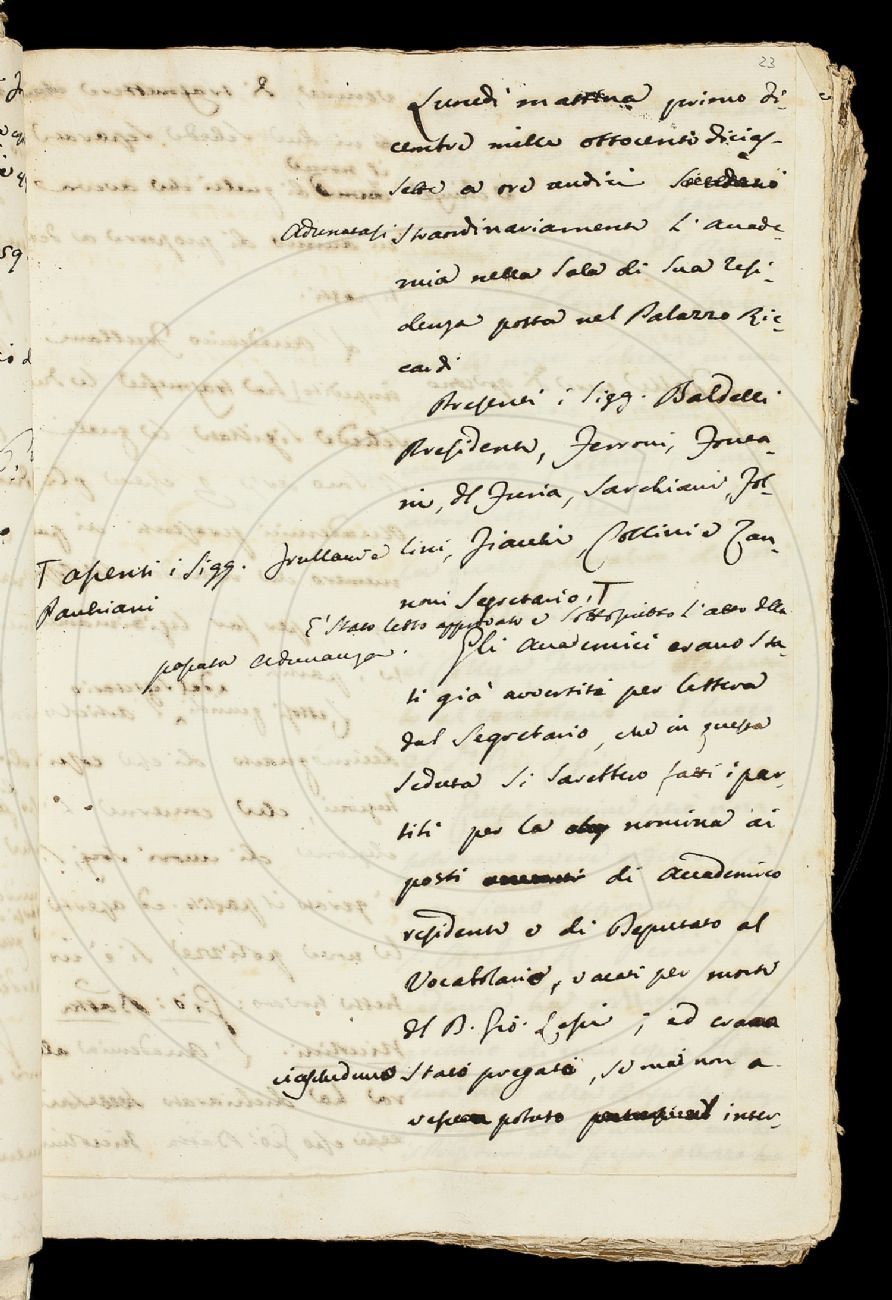 23
Lunedì mattina primo Di-
cembre mille ottocento dicias-
sette a ore undici
Adunatasi straordinariamente l'Accade-
mia nella Sala di sua resi-
denza posta nel Palazzo Ric-
cardi
Presenti i Sigg. Baldelli
Presidente, Ferroni, Fonta-
ni, del Furia, Sarchiani, Fol-
lini, Fiacchi, Collini e Zan-
noni Segretario, T
T assenti i Sigg. Frullani e
Pauliani
È stato letto approvato e sottoscritto l'atto della
passata adunanza.
Gli Accademici erano sta-
ti già avvertiti per lettera
dal Segretario, che in questa
seduta si sarebbero fatti i par-
titi per la nomina ai
posti di Accademico
residente e di Deputato al
Vocabolario, vacati per morte
del B. Gio. Lessi; ed era
ciascheduno stato pregato, se mai non a-
vesse potuto inter-